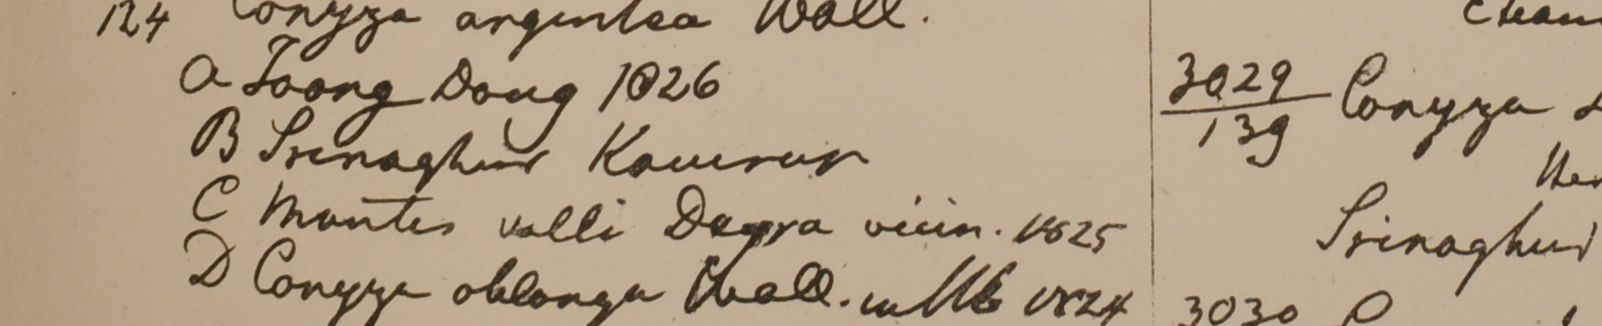 124 Conyza argentea Wall.
A Toong Dong 1826
B Srinaghur Kamrup
C Montes valli Deyra vicin. 1825
D Conyza oblonga Wall. in 1824
3029 Conyza
139
Srinaghur
3030